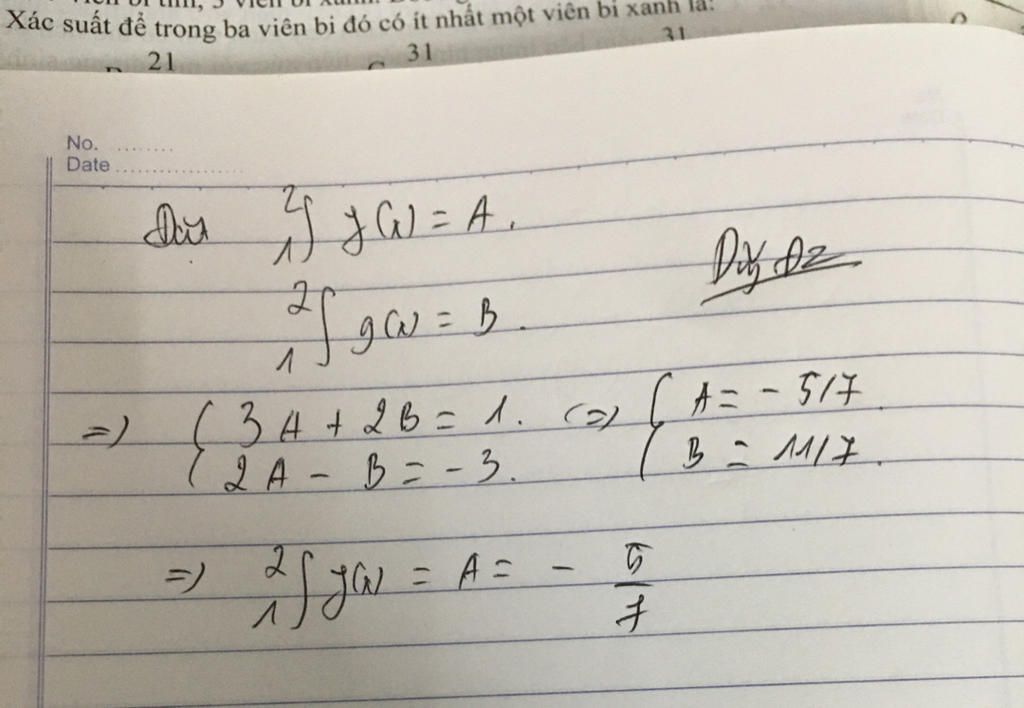 Xác suất để trong ba viên bi đó có ít nhất một viên bi xanh là:
21 31 31
No. ..........
Date ..................
Đặt ₁²∫ f(x) = A.
Duy Đz
₁²∫ g(x) = B.
=> { 3A + 2B = 1. (=) { A = - 5/7.
2A - B = - 3. B = 11/7.
=> ₁²∫ f(x) = A = - 5/7